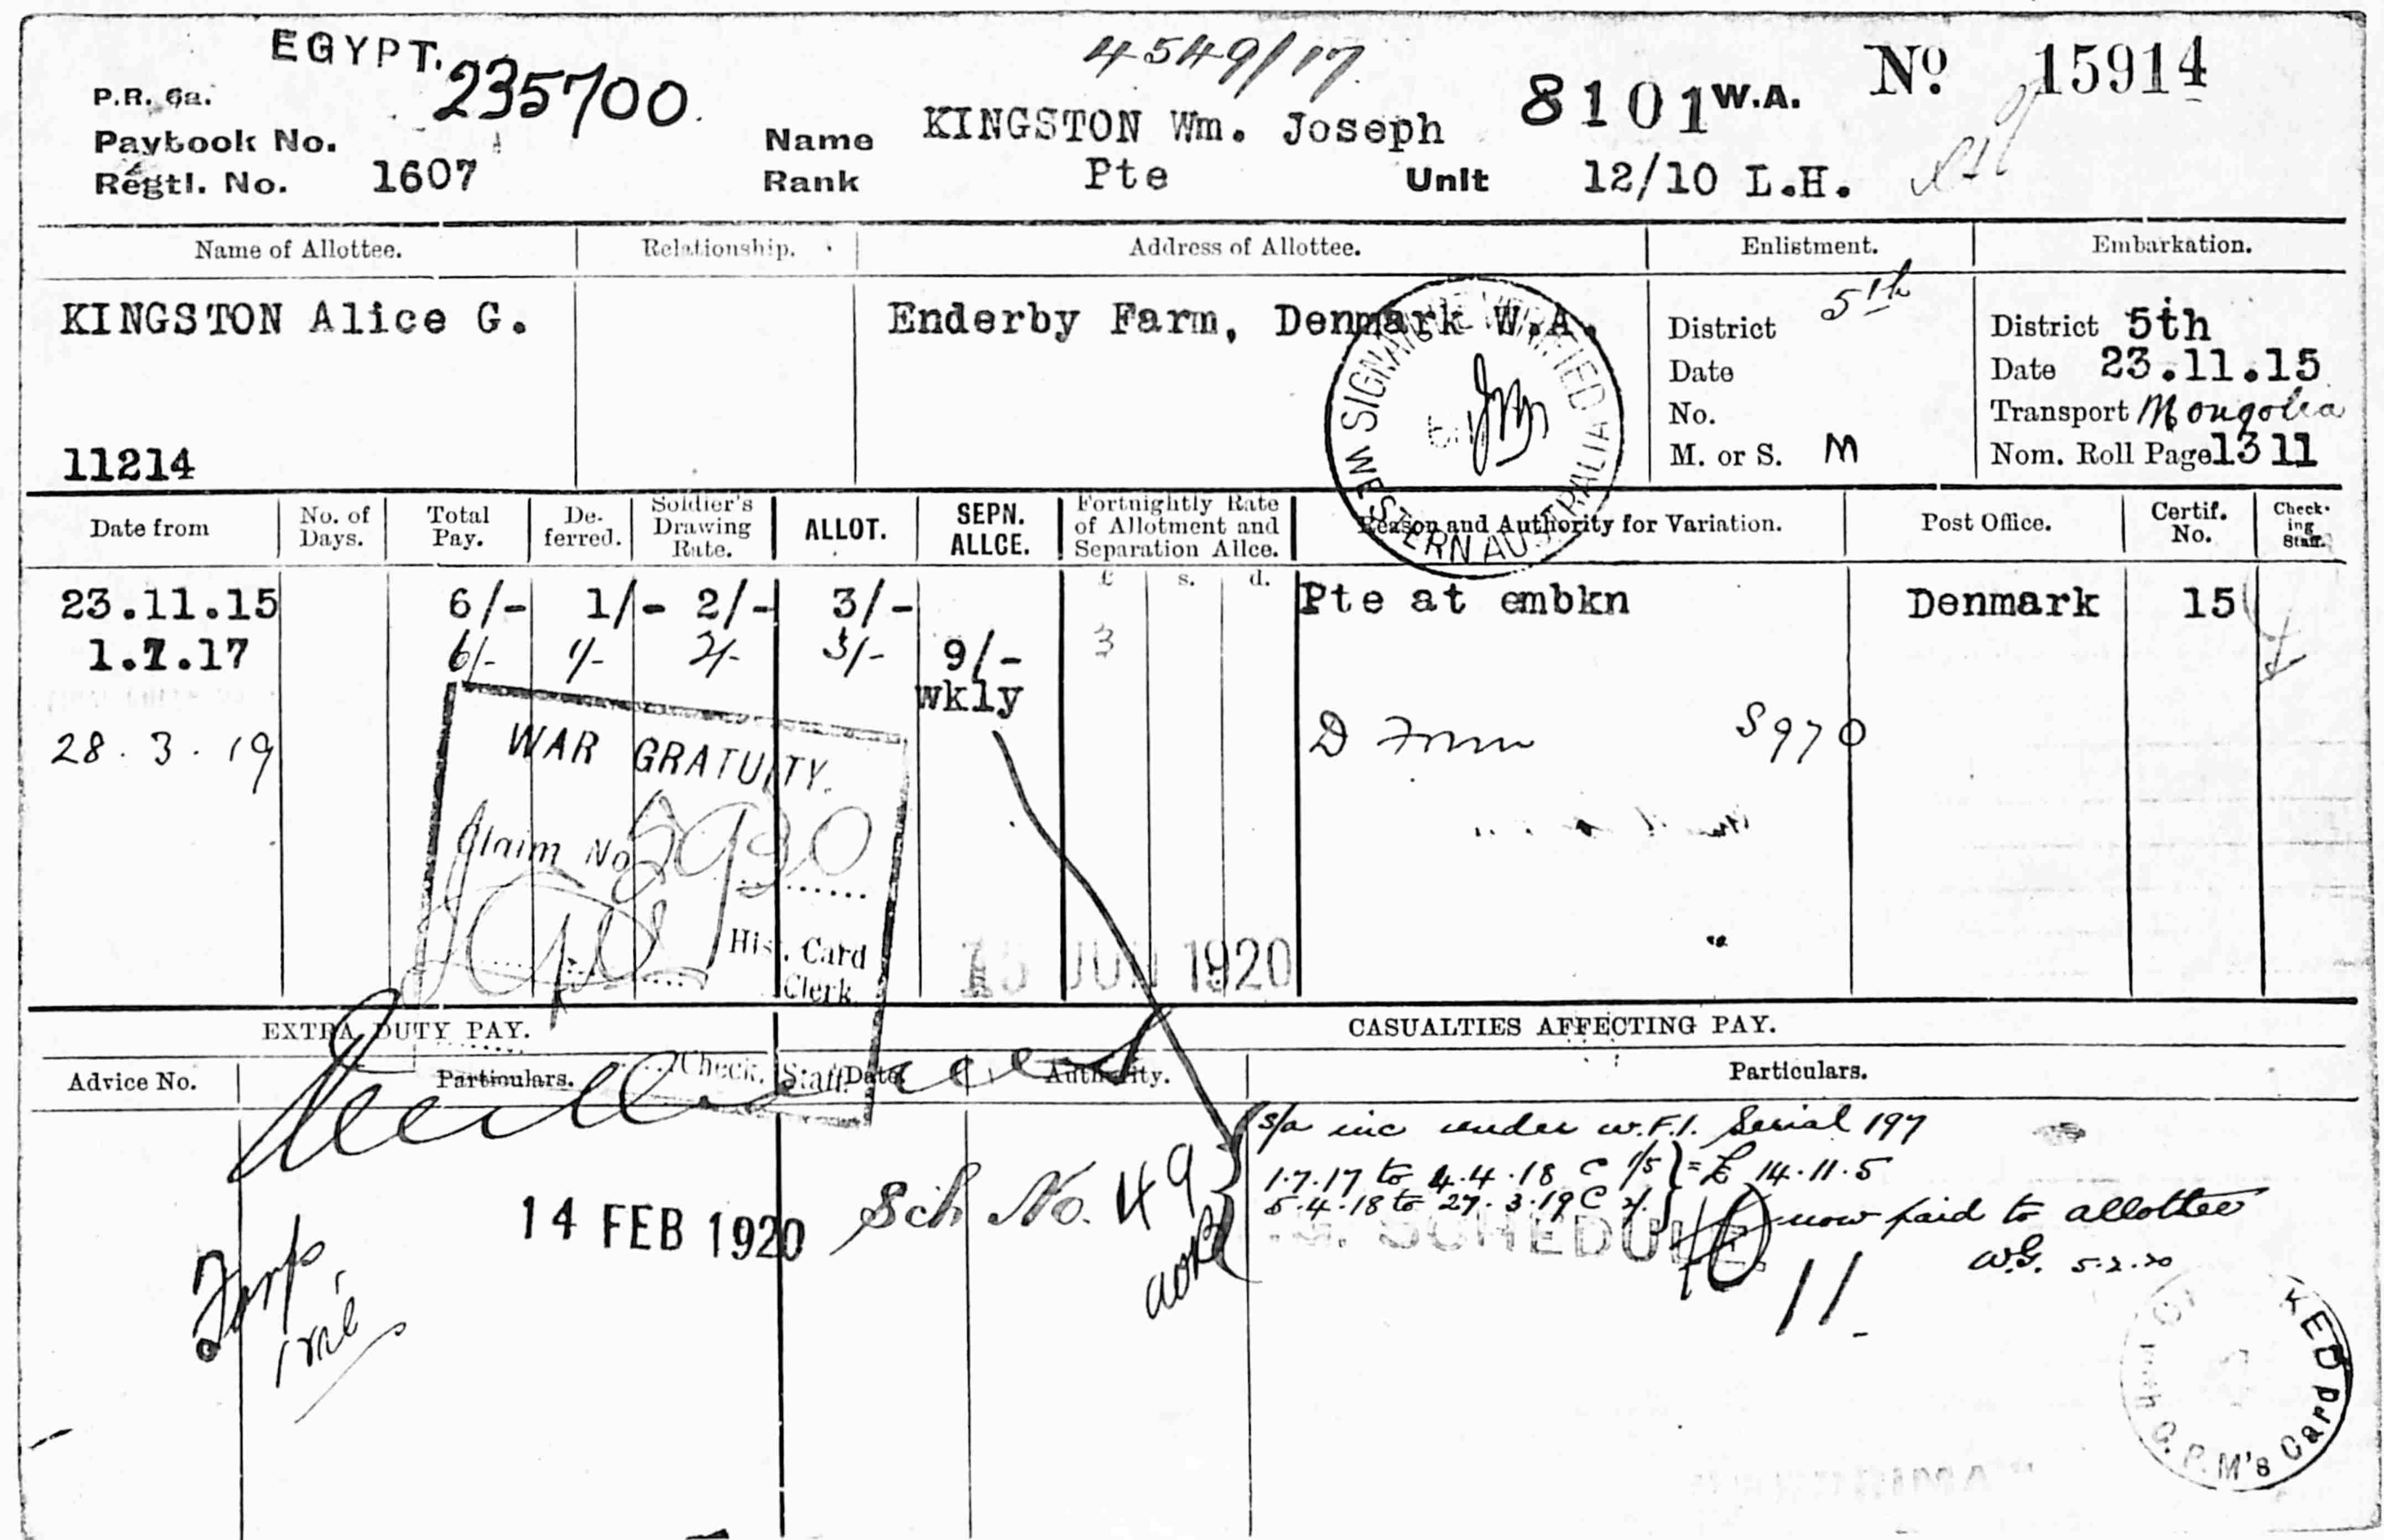 EGYPT.
4549/17
No 15914
P.R. 6a.
235700.
8101 W.A.
Paybook No.
Name KINGSTON Wm. Joseph
Regtl. No. 1607
Rank Pte Unit 12/10 L.H.
Name of Allottee. Relationship. Address of Allottee. Enlistment. Embarkation.
KINGSTON Alice G. Enderby Farm, Denmark W.A.
District 5th District 5th
Date Date 23.11.15
No. Transport Mongolia
11214 M. or S. M Nom. Roll Page 1311
SIGNATURE VERIFIED
WESTERN AUSTRALIA
Date from No. of Days. Total Pay. De-ferred. Soldier's Drawing Rate. ALLOT. SEPN. ALLCE. Fortnightly Rate of Allotment and Separation Allce. Reason and Authority for Variation. Post Office. Certif. No. Check-ing Staff.
£ s. d.
23.11.15 6/- 1/- 2/- 3/- Pte at embkn Denmark 15
1.7.17 6/- 1/- 2/- 3/- 9/- 3
wkly
28.3.19 S970
WAR GRATUITY.
Claim No
His. Card
Clerk
Check. Staff.
15 JUN 1920
EXTRA DUTY PAY. CASUALTIES AFFECTING PAY.
Advice No. Particulars. Date. Authority. Particulars.
s/a inc under w.F.1. Serial 197
1.7.17 to 4.4.18 @ 1/5 } = £ 14.11.5
5.4.18 to 27.3.19 @ 2/. now paid to allottee
14 FEB 1920 Sch No. 49
SCHEDULE
W.G. 5.2.20
11.
G.P.M's Card